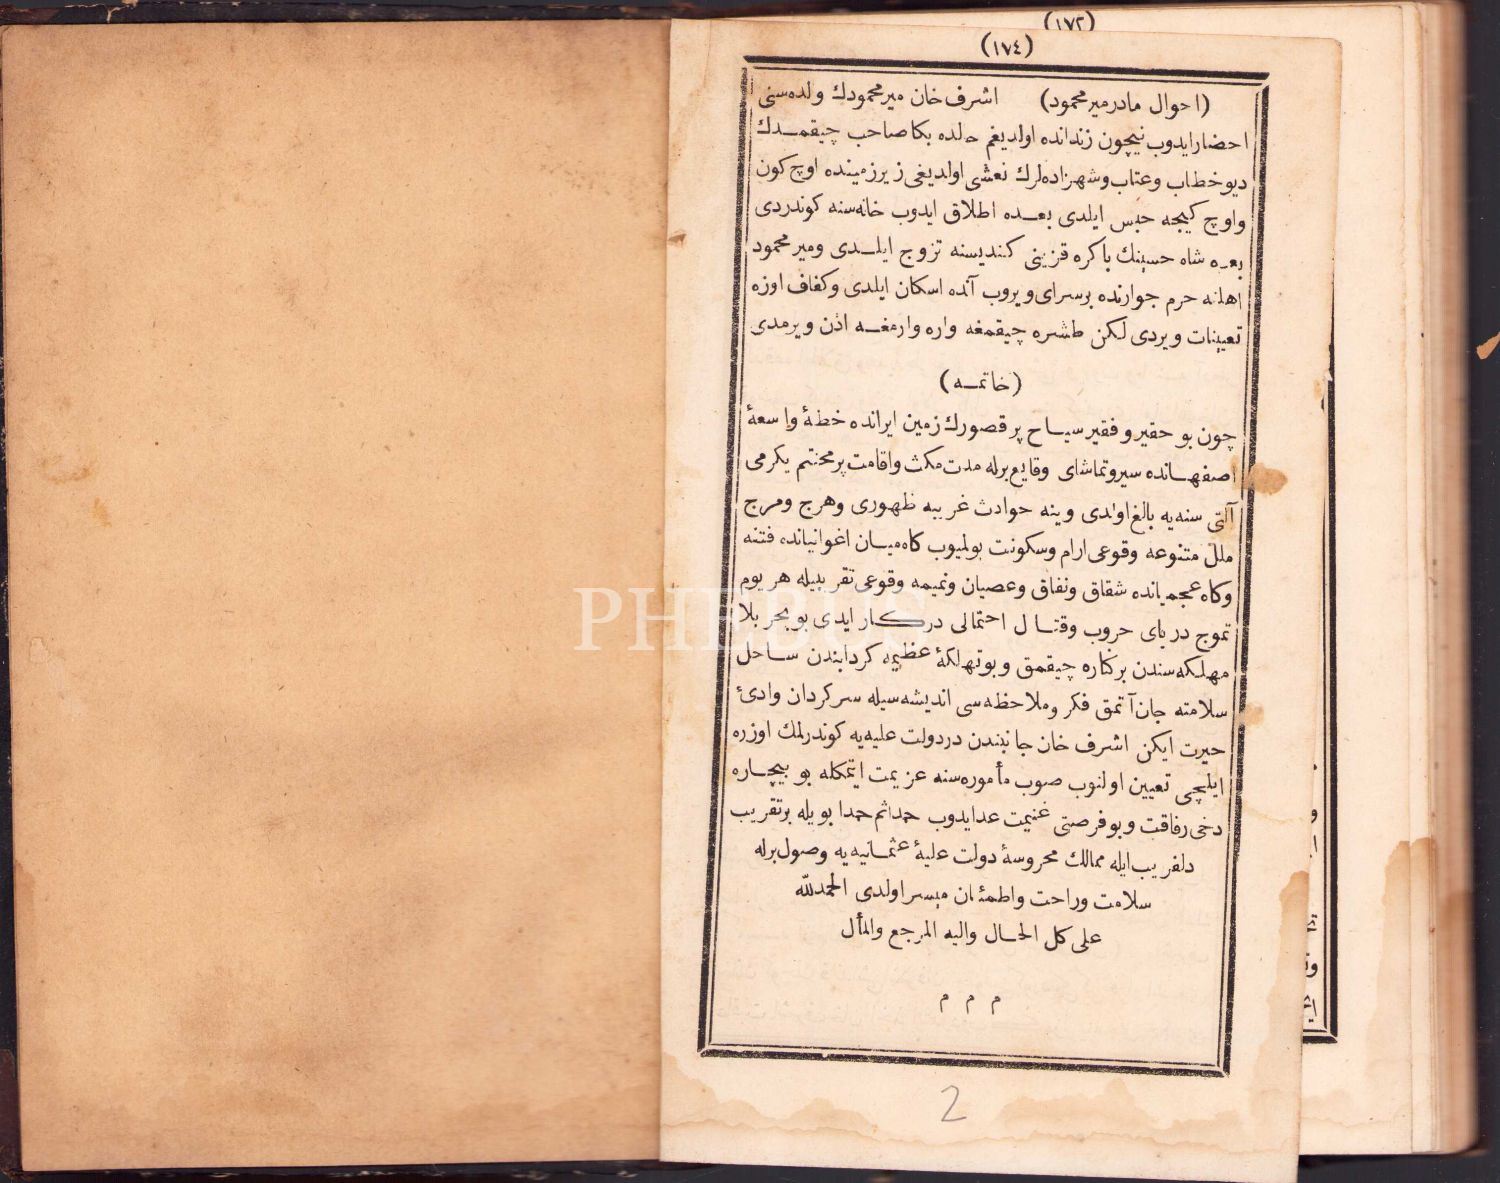 (١٧٢)
(١٧٤)
(احوال مادر میر محمود) اشرف خان میر محمودك ولده‌سنی
احضار ایدوب نیچون زندانده اولدیغم حالده بكا صاحب چیقمدك
دیو خطاب و عتاب و شهزاده‌لرك نعشی اولدیغی زیر زمینده اوچ كون
و اوچ كیجه حبس ایلدی بعده اطلاق ایدوب خانه‌سنه كوندردی
بعده شاه حسینك باكره قزینی كندیسنه تزوج ایلدی و میر محمود
اهلنه حرم جوارنده بر سرای ویروب آنده اسكان ایلدی و كفاف اوزه
تعیینات ویردی لكن طشره چیقمغه واره وارمغه اذن ویرمدی
(خاتمه)
چون بو حقیر و فقیر سیاح پر قصورك زمین ایرانده خطۀ واسعۀ
اصفهانده سیر و تماشای وقایع برله مدت مكث و اقامت پر محنتم یكرمی
آلتی سنه‌یه بالغ اولدی وینه حوادث غریبه ظهوری و هرج و مرج
ملل متنوعه وقوعی ارام و سكونت بولمیوب كاه میان اغوانیانده فتنه
و كاه عجمیانده شقاق و نفاق و عصیان و نمیمه وقوعی تقریبیله هر یوم
تموج دریای حروب و قتال احتمالی دركار ایدی بو بحر بلا
مهلكه‌سندن بر كناره چیقمق و بو تهلكۀ عظیمه كردابندن ساحل
سلامته جان آتمق فكر و ملاحظه‌سی اندیشه‌سیله سركردان وادئ
حیرت ایكن اشرف خان جانبندن در دولت علیه‌یه كوندرلمك اوزره
ایلچی تعیین اولنوب صوب مأموره‌سنه عزیمت ایتمكله بو بیچاره
دخی رفاقت و بو فرصتی غنیمت عد ایدوب حمدا ثم حمدا بویله بر تقریب
دلفریب ایله ممالك محروسۀ دولت علیۀ عثمانیه‌یه وصول برله
سلامت و راحت و اطمئنان میسر اولدی الحمدلله
علی كل الحال و الیه المرجع و المأل
م م م
2
PHEBUS